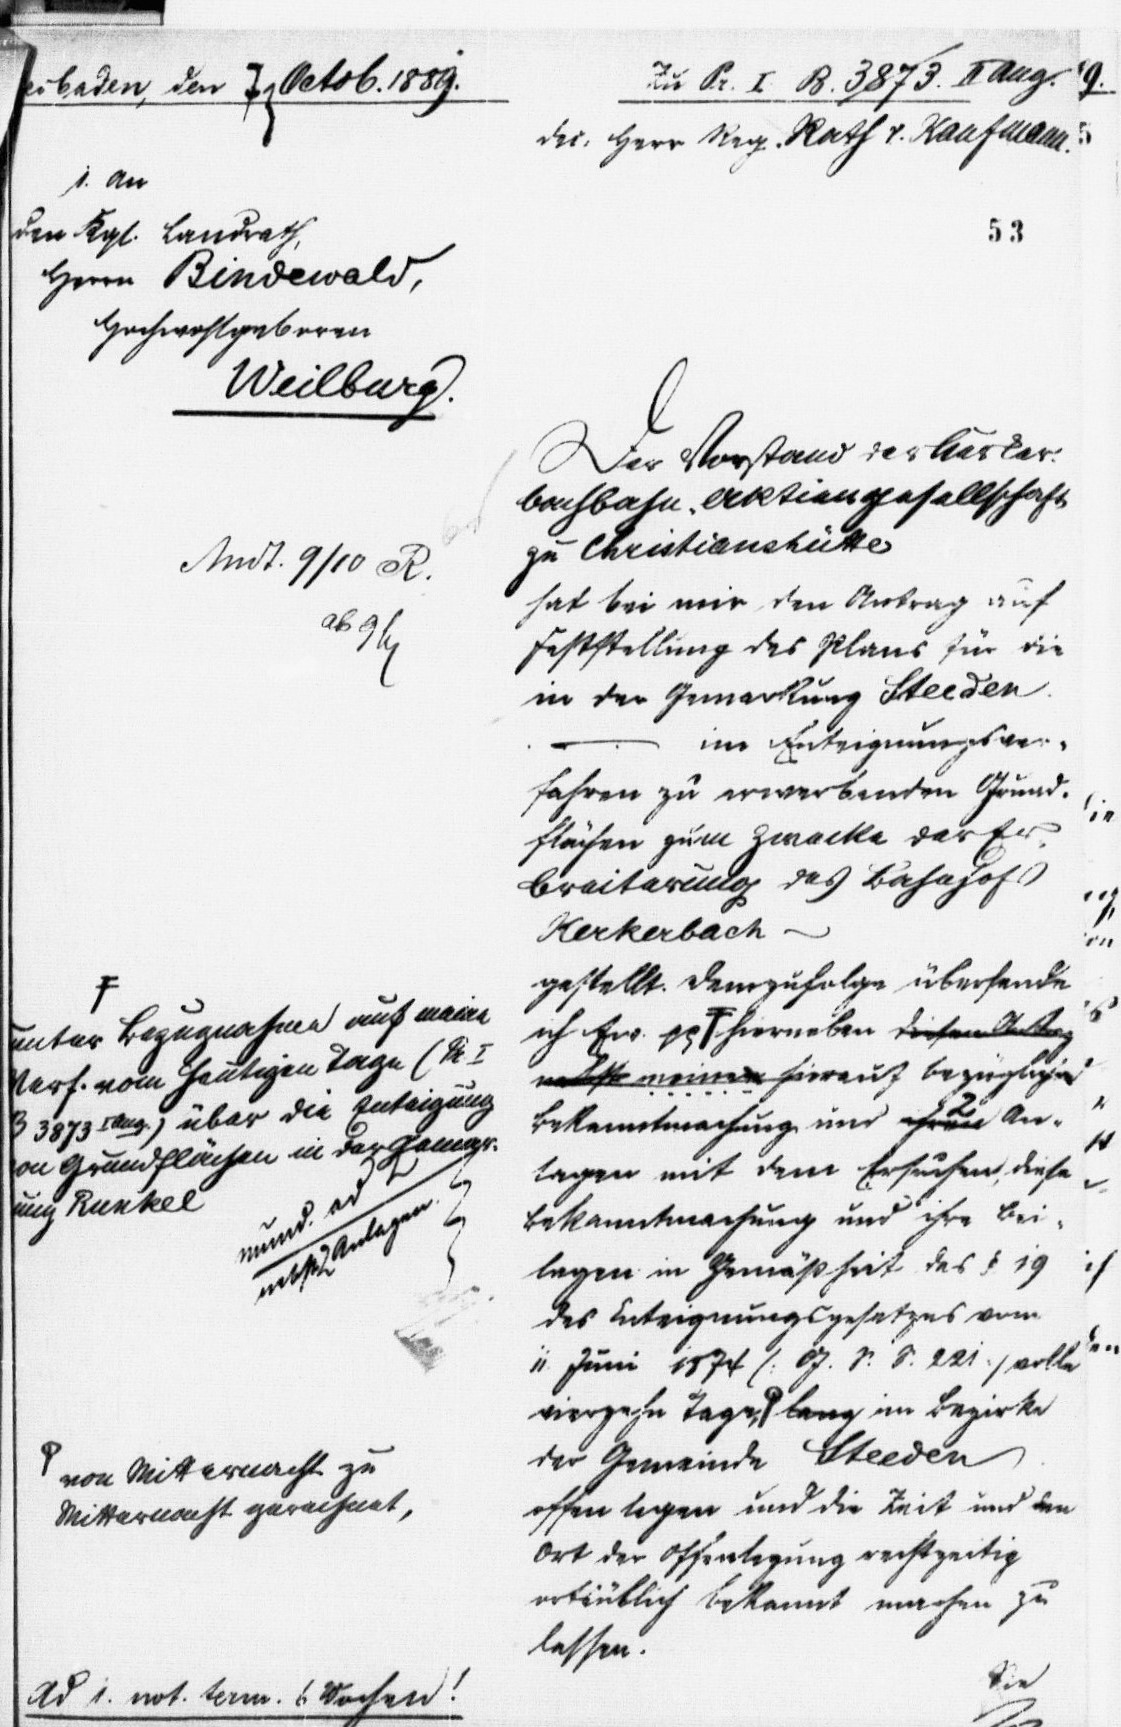 esbaden, den 7 Octob. 1889.
Zu Pr. I. B. 3873. II Aug.
Herr Reg. Rath v. Kaufmann.
53
1. An
den Kgl. Landrath,
Herrn Bindewald,
Hochwohlgeboren
Weilburg.
Der Vorstand der Kerker-
bachbahn-Aktiengesellschaft
zu Christianshütte
hat bei mir den Antrag auf
Feststellung des Plans für die
in der Gemarkung Steeden
im Enteignungsver-
fahren zu erwerbenden Grund-
flächen zum Zwecke der Er-
breiterung des Bahnhofs
Kerkerbach
gestellt. Demzufolge übersende
ich Ew. pp hierneben diesen Antrag
nebst meiner hierauf bezüglichen
Bekanntmachung und 2 An-
lagen mit dem Ersuchen, diese
Bekanntmachung und ihre Bei-
lagen in Gemäßheit des § 19
des Enteignungsgesetzes vom
11. Juni 1874 (: G. S. S. 221 :) volle
vierzehn Tage, lang im Bezirke
der Gemeinde Steeden
offen legen und die Zeit und den
Ort der Offenlegung rechtzeitig
ortsüblich bekannt machen zu
lassen.
Sie
9/10 R.
ab 9/
unter Bezugnahme auf meine
Verf. vom heutigen Tage (Pr. I
B 3873 I Ang.) über die Enteignung
von Grundflächen in der Gemar-
ung Runkel
mund. ad
nebst 2 Anlagen
von Mitternacht zu
Mitternacht gerechnet,
Ad 1. not. term. 6 Wochen!